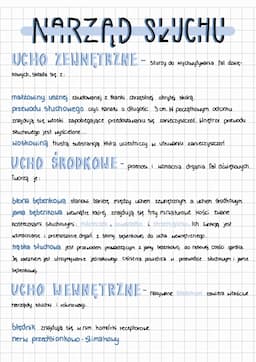 NARZĄD SŁUCHU
UCHO ZEWNĘTRZNE - służy do wychwytywania fal dźwię-
kowych, składa się z:
małżowiny usznej zbudowanej z tkanki chrzęstnej okrytej skórą
przewodu słuchowego czyli kanału o długości 3 cm. W początkowym odcinku
znajdują się włoski zapobiegające przedostawaniu się zanieczyszczeń. Wnętrze przewodu
słuchowego jest wyścielone...
woskowiną tłustą substancją która uczestniczy w usuwaniu zanieczyszczeń
UCHO ŚRODKOWE - przenosi i wzmacnia drgania fal dźwiękowych.
Tworzą je:
błona bębenkowa stanowi barierę między uchem zewnętrznym a uchem środkowym
jama bębenkowa wewnątrz której znajdują się trzy miniaturowe kości zwane
kosteczkami słuchowymi: młoteczek, kowadełko i strzemiączko. Ich funkcją jest
wzmacnianie i przenoszenie drgań z błony bębenkowej do ucha wewnętrznego.
trąbka słuchowa jest przewodem prowadzącym z jamy bębenkowej do nosowej części gardła.
Jej zadaniem jest utrzymywanie jednakowego ciśnienia powietrza w przewodzie słuchowym i jamie
bębenkowej.
UCHO WEWNĘTRZNE - nazywane zawiera właściwe
narządy słuchu i równowagi.
błędnik znajdują się w nim komórki receptorowe
nerw przedsionkowo-ślimakowy